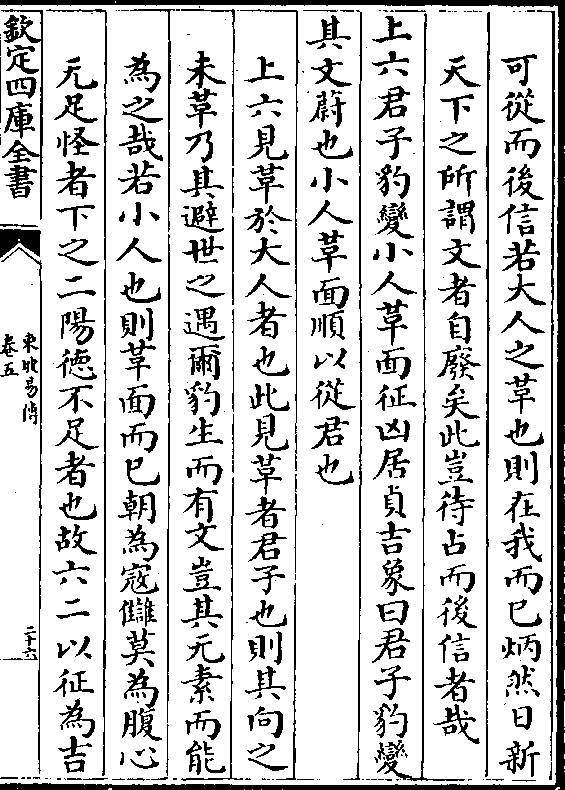 可從而後信若大人之革也則在我而已炳然日新
天下之所謂文者自廢矣此豈待占而後信者哉
上六君子豹變小人革面征凶居貞吉象曰君子豹變
其文蔚也小人革面順以從君也
上六見革於大人者也此見革者君子也則其向之
未革乃其避世之遇爾豹生而有文豈其无素而能
為之哉若小人也則革面而已朝為寇讎莫為腹心
无足怪者下之二陽徳不足者也故六二以征為吉
欽定四庫全書
東坡易傳
卷五
二十六